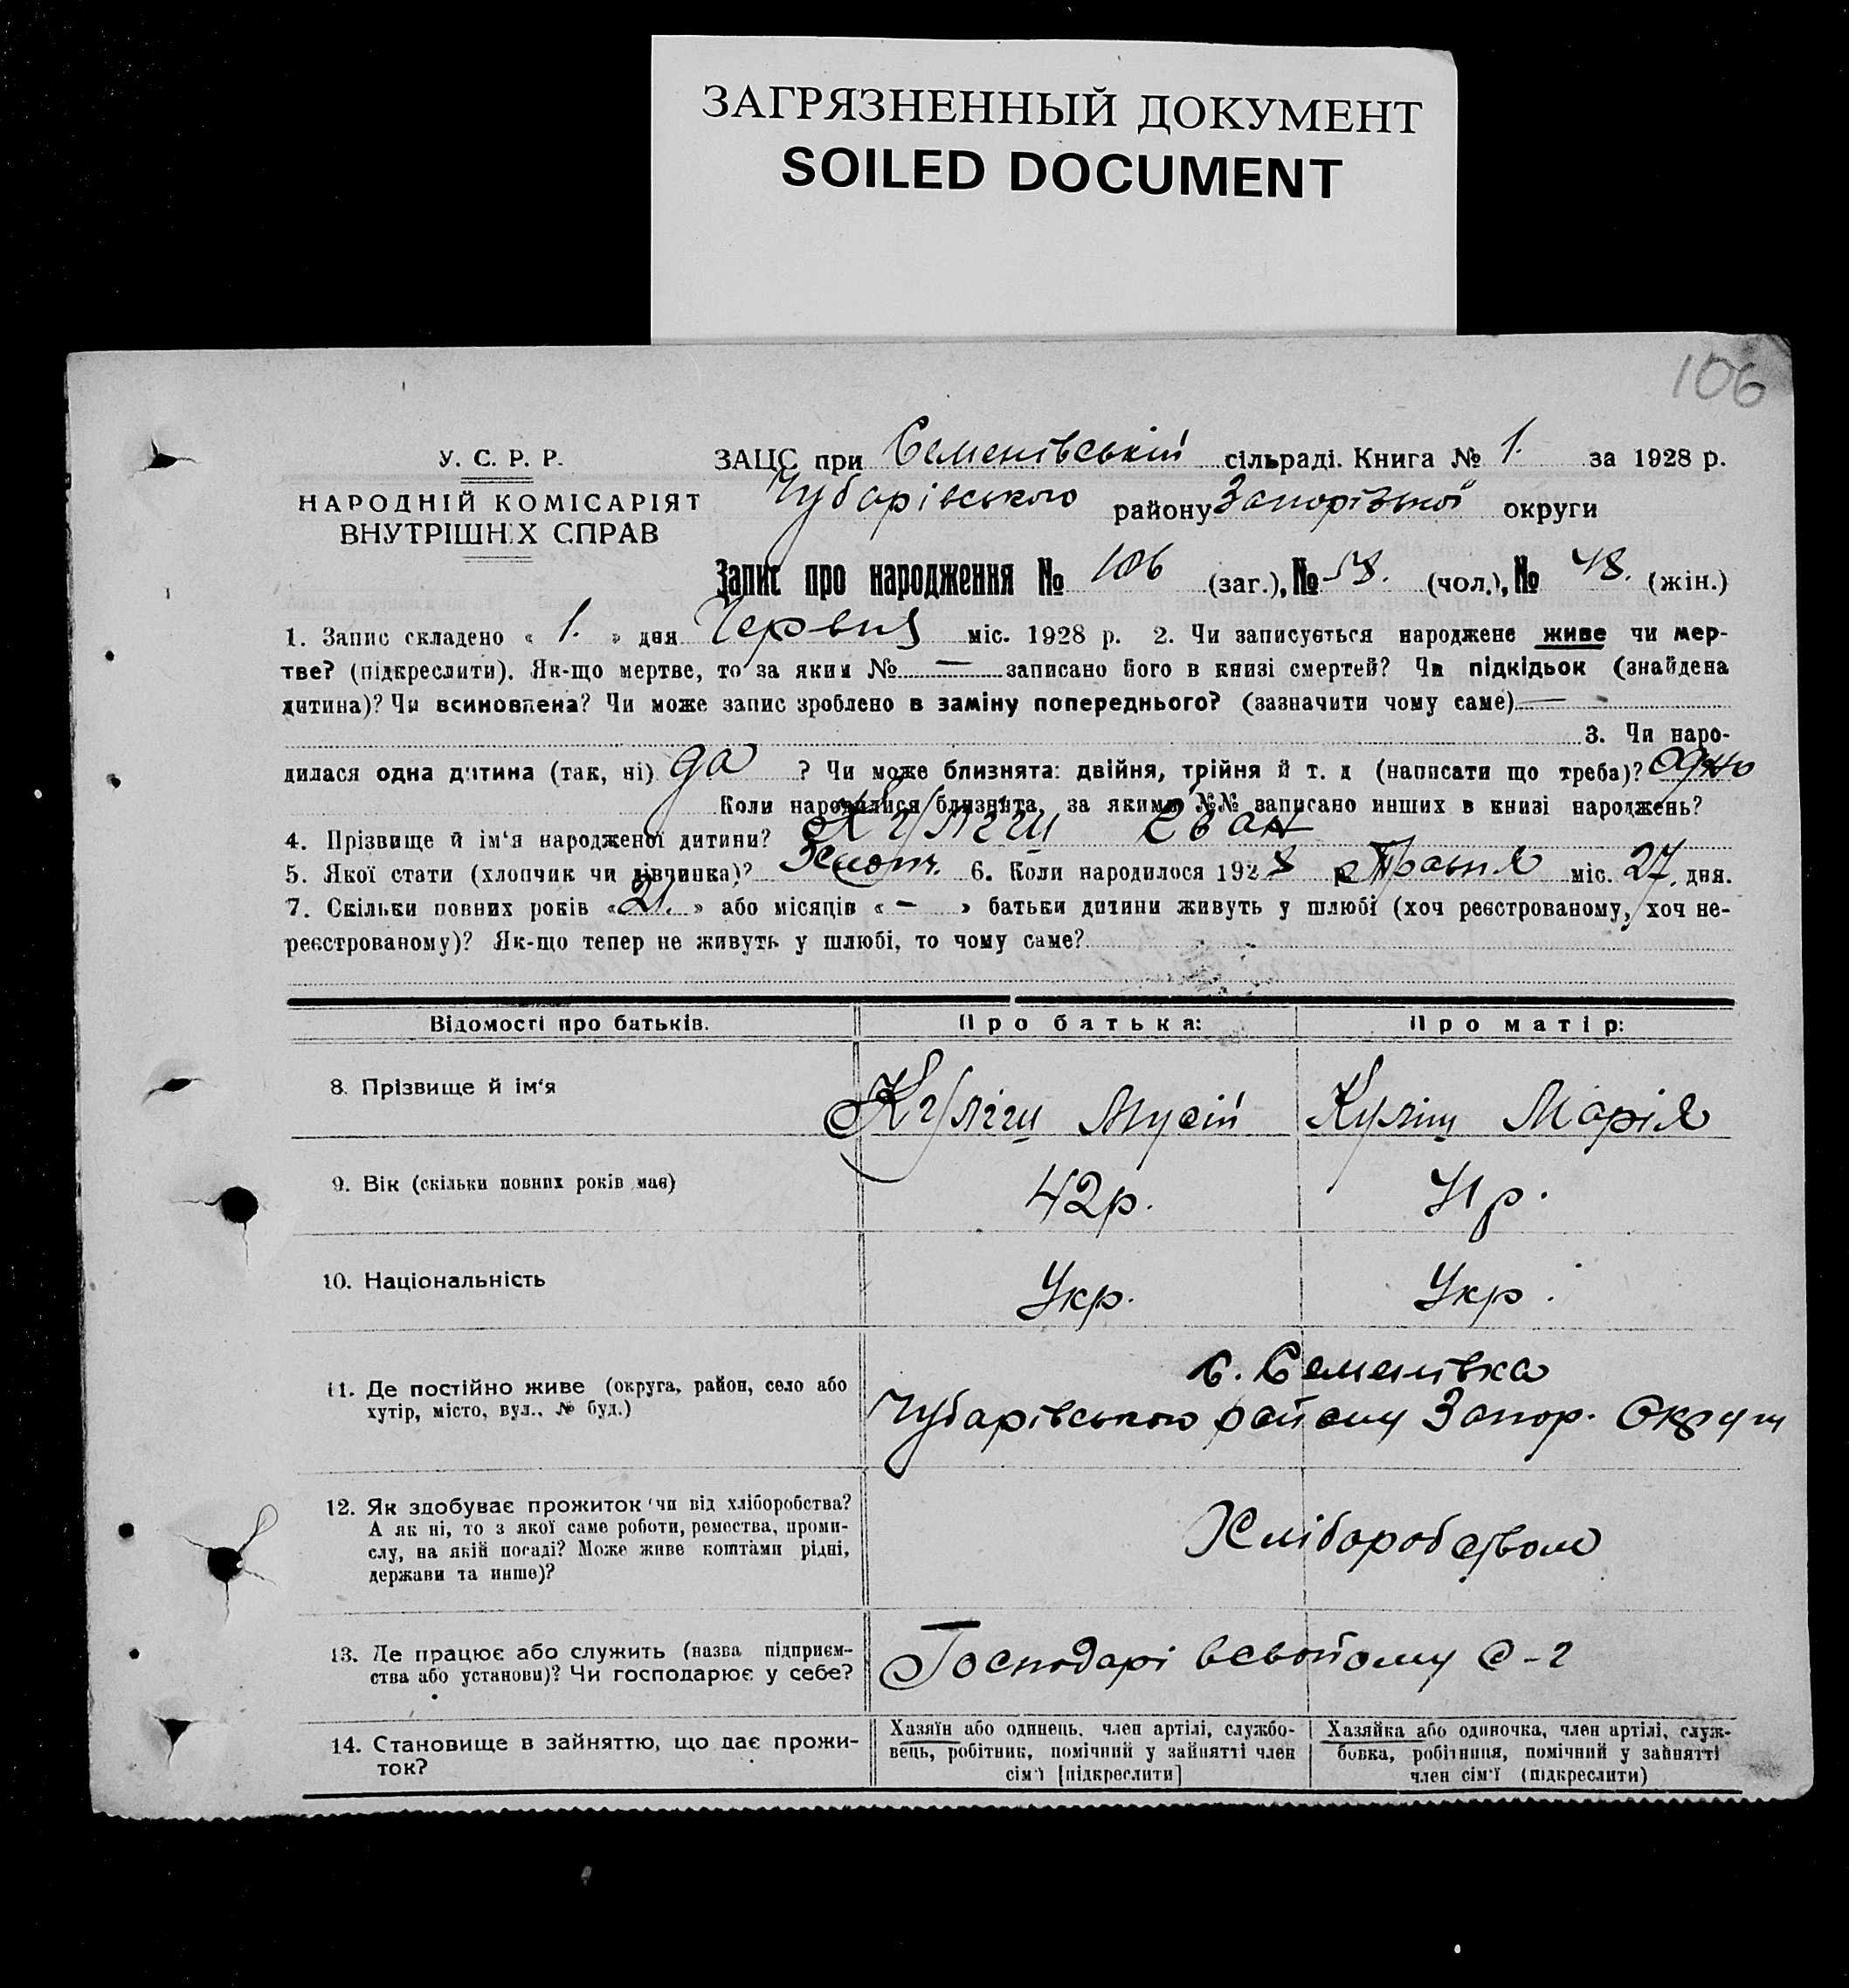 ЗАГРЯЗНЕННЫЙ ДОКУМЕНТ
SOILED DOCUMENT
106
У. С. Р. Р.
НАРОДНІЙ КОМІСАРІЯТ
ВНУТРІШНІХ СПРАВ
ЗАЦС при Семенівській сільраді. Книга № 1. за 1928 р.
Чубарівського району Запорізької округи
Запис про народження № 106 (заг.), № 58. (чол.), № 48. (жін.)
1. Запис складено « 1. » дня Червня міс. 1928 р. 2. Чи записується народжене живе чи мер-
тве? (підкреслити). Як-що мертве, то за яким № — записано його в книзі смертей? Чи підкідьок (знайдена
дитина)? Чи всиновлена? Чи може запис зроблено в заміну попереднього? (зазначити чому саме) —
3. Чи наро-
дилася одна дитина (так, ні) да ? Чи може близнята: двійня, трійня й т. д (написати що треба)? Одно
Коли народилися близнята, за якими №№ записано инших в книзі народжень?
4. Прізвище й ім‘я народженої дитини? Куліш Іван
5. Якої стати (хлопчик чи дівчинка)? Хлопч. 6. Коли народилося 1928 р Травня міс. 27. дня.
7. Скільки повних років « 21. » або місяців « – » батьки дитини живуть у шлюбі (хоч реєстрованому, хоч не-
реєстрованому)? Як-що тепер не живуть у шлюбі, то чому саме?
Відомості про батьків. Про батька: Про матір:
8. Прізвище й ім‘я Куліш Мусій Куліш Марія
9. Вік (скільки повних років має) 42р. 41р.
10. Національність Укр. Укр.
с. Семенівка
11. Де постійно живе (округа, район, село або
хутір, місто, вул., № буд.) Чубарівського району Запор. Округи
12. Як здобуває прожиток чи від хліборобства?
А як ні, то з якої саме роботи, ремества, проми-
слу, на якій посаді? Може живе коштами рідні,
держави та инше)? Хліборобством
13. Де працює або служить (назва підприєм-
ства або установи)? Чи господарює у себе? Господарі всвойому С-г
14. Становище в зайняттю, що дає прожи-
ток?
Хазяїн або одинець, член артілі, службо-
вець, робітник, помічний у зайнятті член
сім‘ї [підкреслити]
Хазяйка або одиночка, член артілі, служ-
бовка, робітниця, помічний у зайнятті
член сім‘ї (підкреслити)